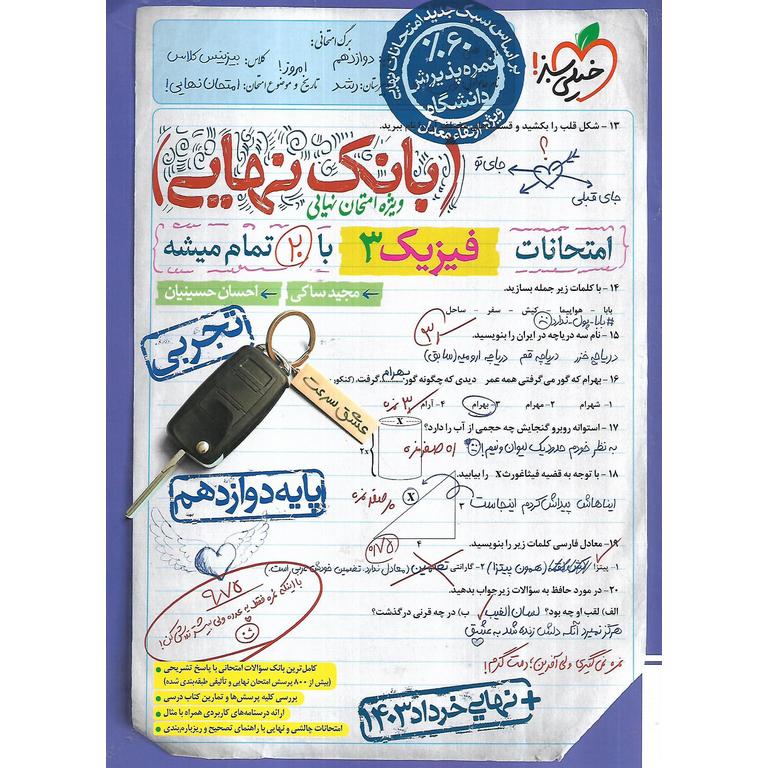 خیلی سبز!
براساس سبک جدید امتحانات نهایی
%۶۰
نمره پذیرش
دانشگاه
ویژه ارتقاء معدل
برگ امتحانی:
دوازدهم
کلاس: بیزینس کلاس
امروز!
رشد
تاریخ و موضوع امتحان: امتحان نهایی!
۱۳ - شکل قلب را بکشید و نام ببرید.
؟
جای تو
جای قبلی
(بانک نهایی)
ویژه امتحان نهایی
امتحانات فیزیک ۳ با ۲۰ تمام میشه
مجید ساکی ← احسان حسینیان ←
۱۴ - با کلمات زیر جمله بسازید.
بابا - هواپیما - کیش - سفر - ساحل
#بابا-پول-ندارد
۱۵ - نام سه دریاچه در ایران را بنویسید.
دریاچه خزر دریاچه قم دریاچه ارومیه (سابق)
۱۶ - بهرام که گور می‌گرفتی همه عمر دیدی که چگونه گور بهرام گرفت. (کنکور
۱- شهرام ۲- مهرام ۳- بهرام ۴- آرام
۳ نمره
۱۷ - استوانه روبرو گنجایش چه حجمی از آب را دارد؟
به نظر خودم حدود یک لیوان و نیم!
X
۲x
۱۸ - با توجه به قضیه فیثاغورث X را بیابید.
ایناهاش پیداش کردم اینجاست
X
۳
۴
تجربی
عشق سرعت
پایه دوازدهم
۰/۷۵
۱۹ - معادل فارسی کلمات زیر را بنویسید.
۱- پیتزا (همون پیتزا) ۲- گارانتی تضمین (معادل ندارد. تضمین خودش عربی است.)
۲۰ - در مورد حافظ به سؤالات زیر جواب بدهید.
الف) لقب او چه بود؟ لسان الغیب ب) در چه قرنی درگذشت؟
هرگز نمیرد آنکه دلش زنده شد به عشق
نمره نمی‌گیری ولی آفرین؛ دمت گرم!
۹/۷۵
با اینکه نمره فقط یه عدده ولی بیشتر تلاش کن!
کامل‌ترین بانک سؤالات امتحانی با پاسخ تشریحی
(بیش از ۸۰۰ پرسش امتحان نهایی و تألیفی طبقه‌بندی شده)
بررسی کلیه پرسش‌ها و تمارین کتاب درسی
ارائه درسنامه‌های کاربردی همراه با مثال
امتحانات چالشی و نهایی با راهنمای تصحیح و ریزبارم‌بندی
+ نهایی خرداد ۱۴۰۳